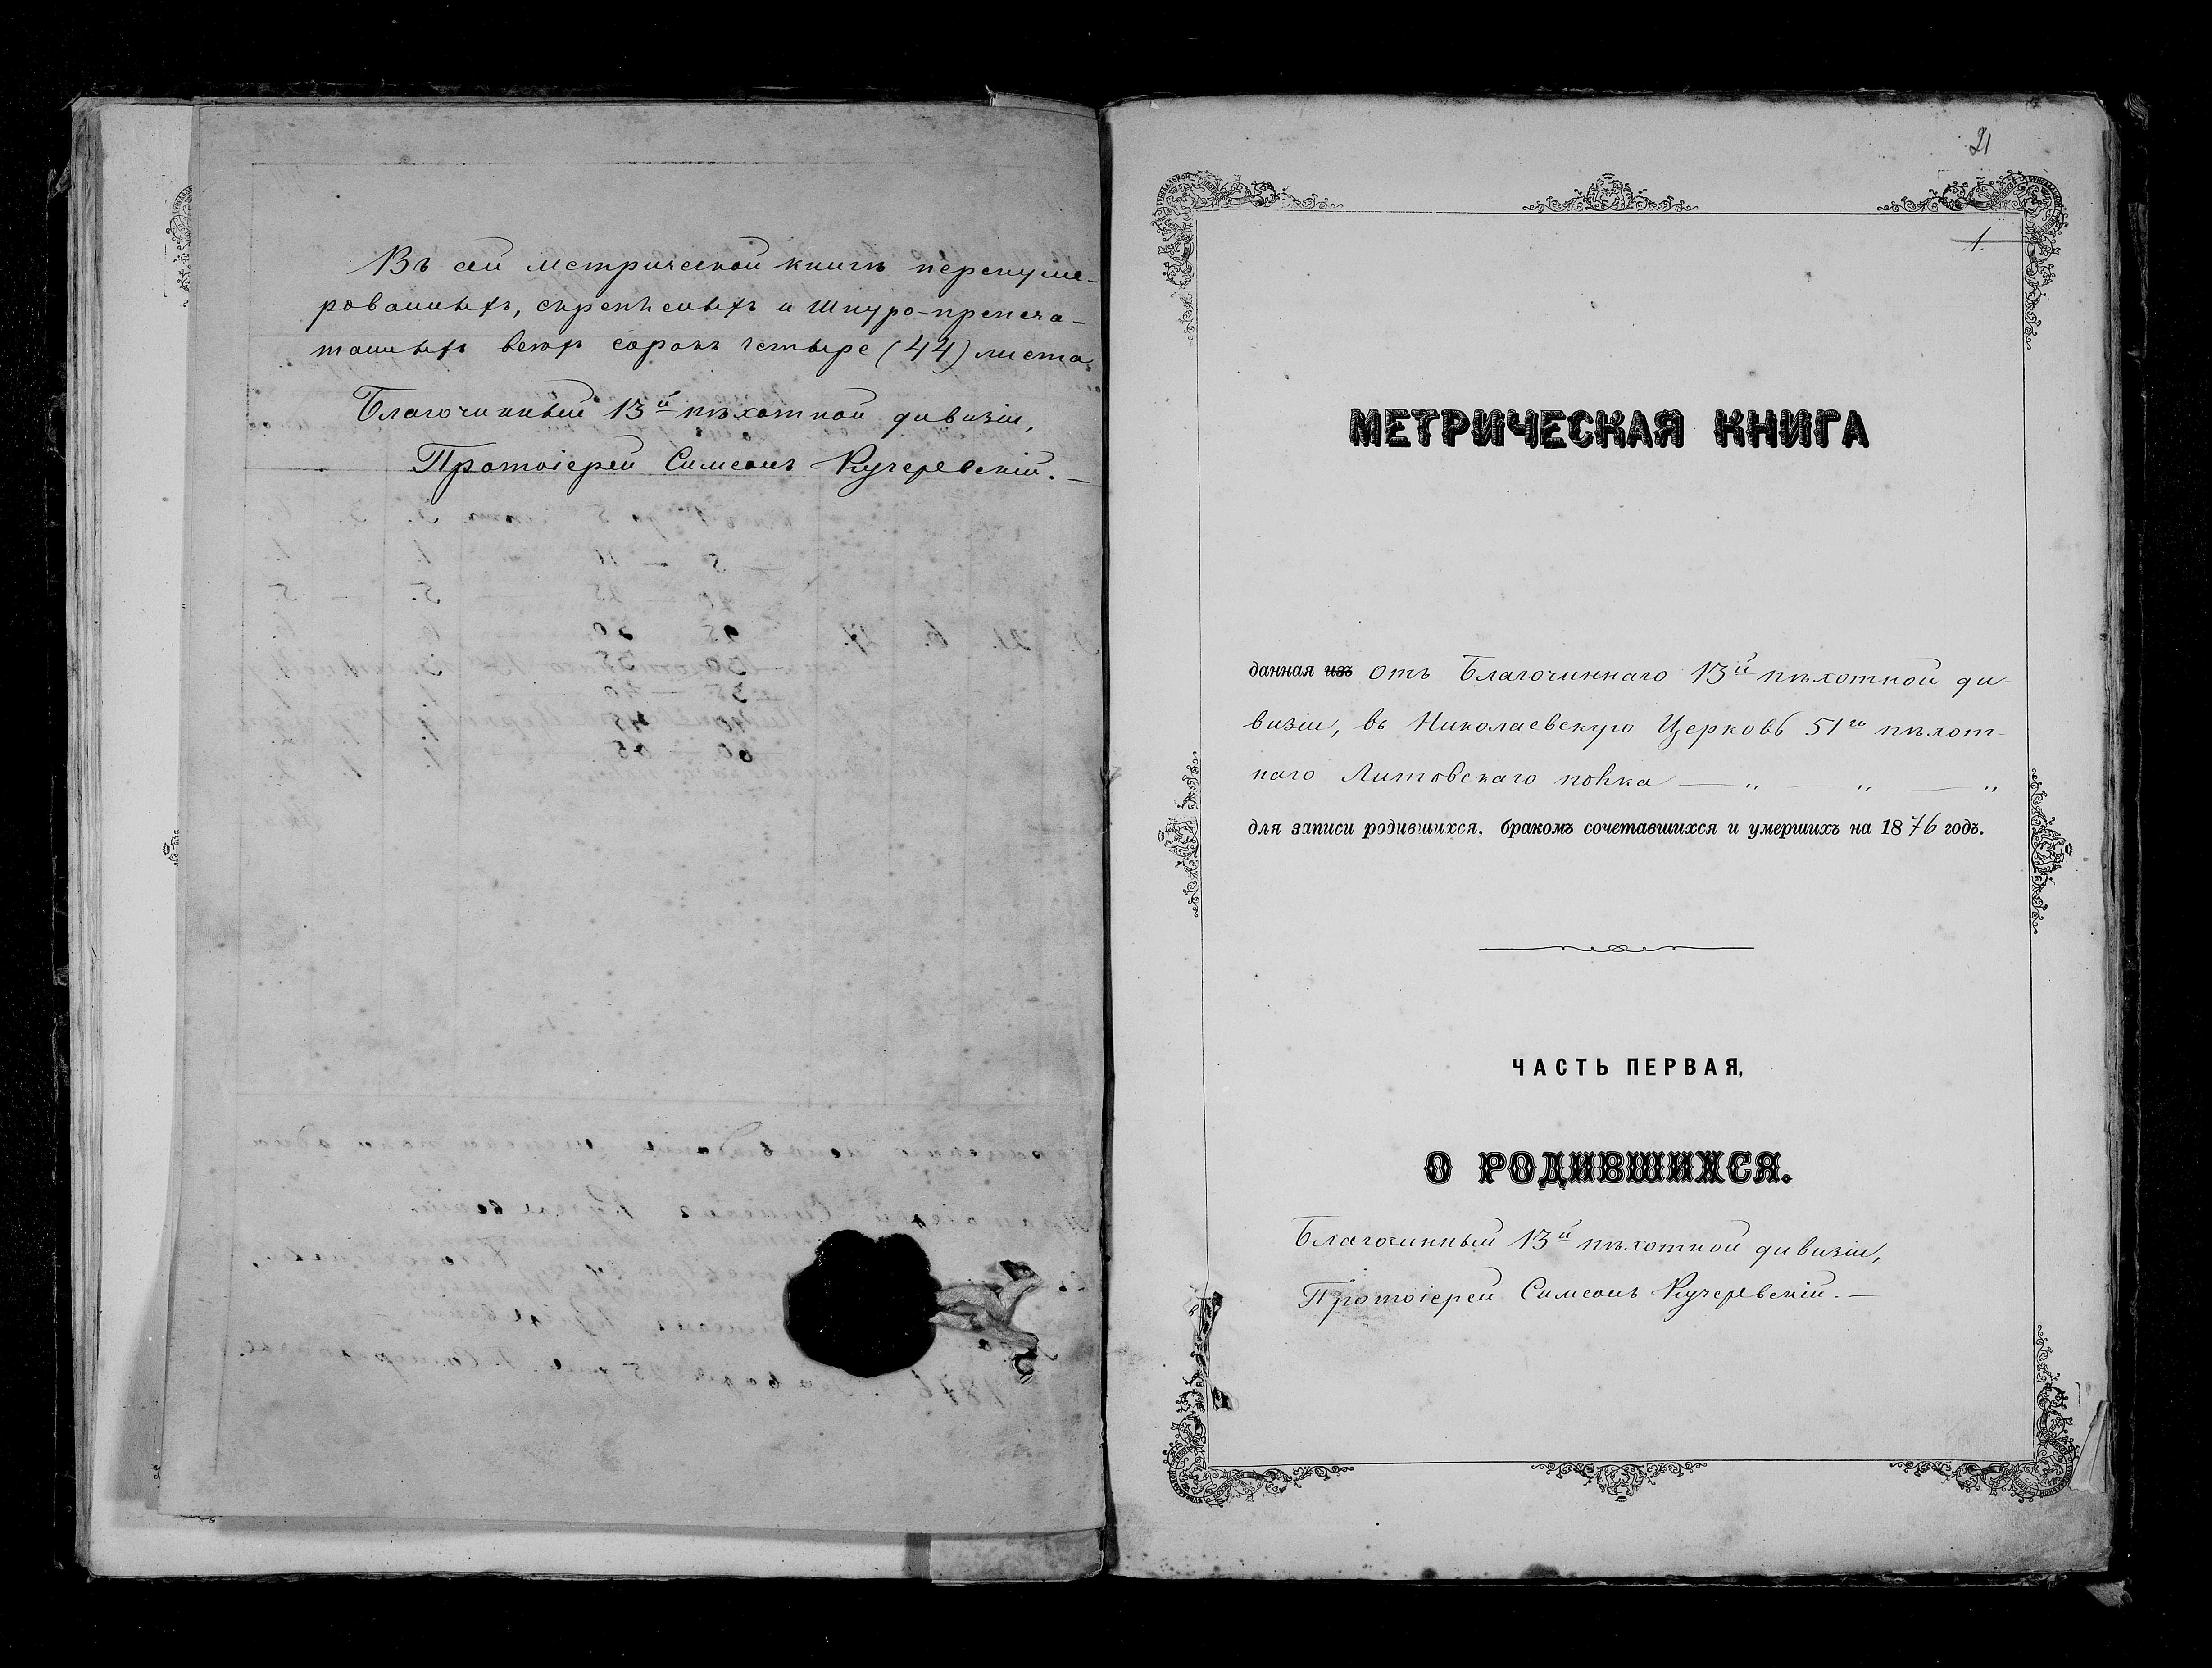 Въ сей метрической книгѣ перенуме-
рованныхъ, скрѣпленыхъ и шнуро-пропеча-
танныхъ всѣхъ сорокъ четыре (44) листа.
Благочинный 13й пѣхотной дивизіи,
Протоіерей Симеонъ Кучеревскій. —
21
1.
МЕТРИЧЕСКАЯ КНИГА
данная изъ отъ Благочиннаго 13й пѣхотной ди-
визіи, въ Николаевскую Церковь 51го пѣхот-
наго Литовскаго полка — „ — „ — „
для записи родившихся, бракомъ сочетавшихся и умершихъ на 1876 годъ.
ЧАСТЬ ПЕРВАЯ,
О РОДИВШИХСЯ.
Благочинный 13й пѣхотной дивизіи,
Протоіерей Симеонъ Кучеревскій. —